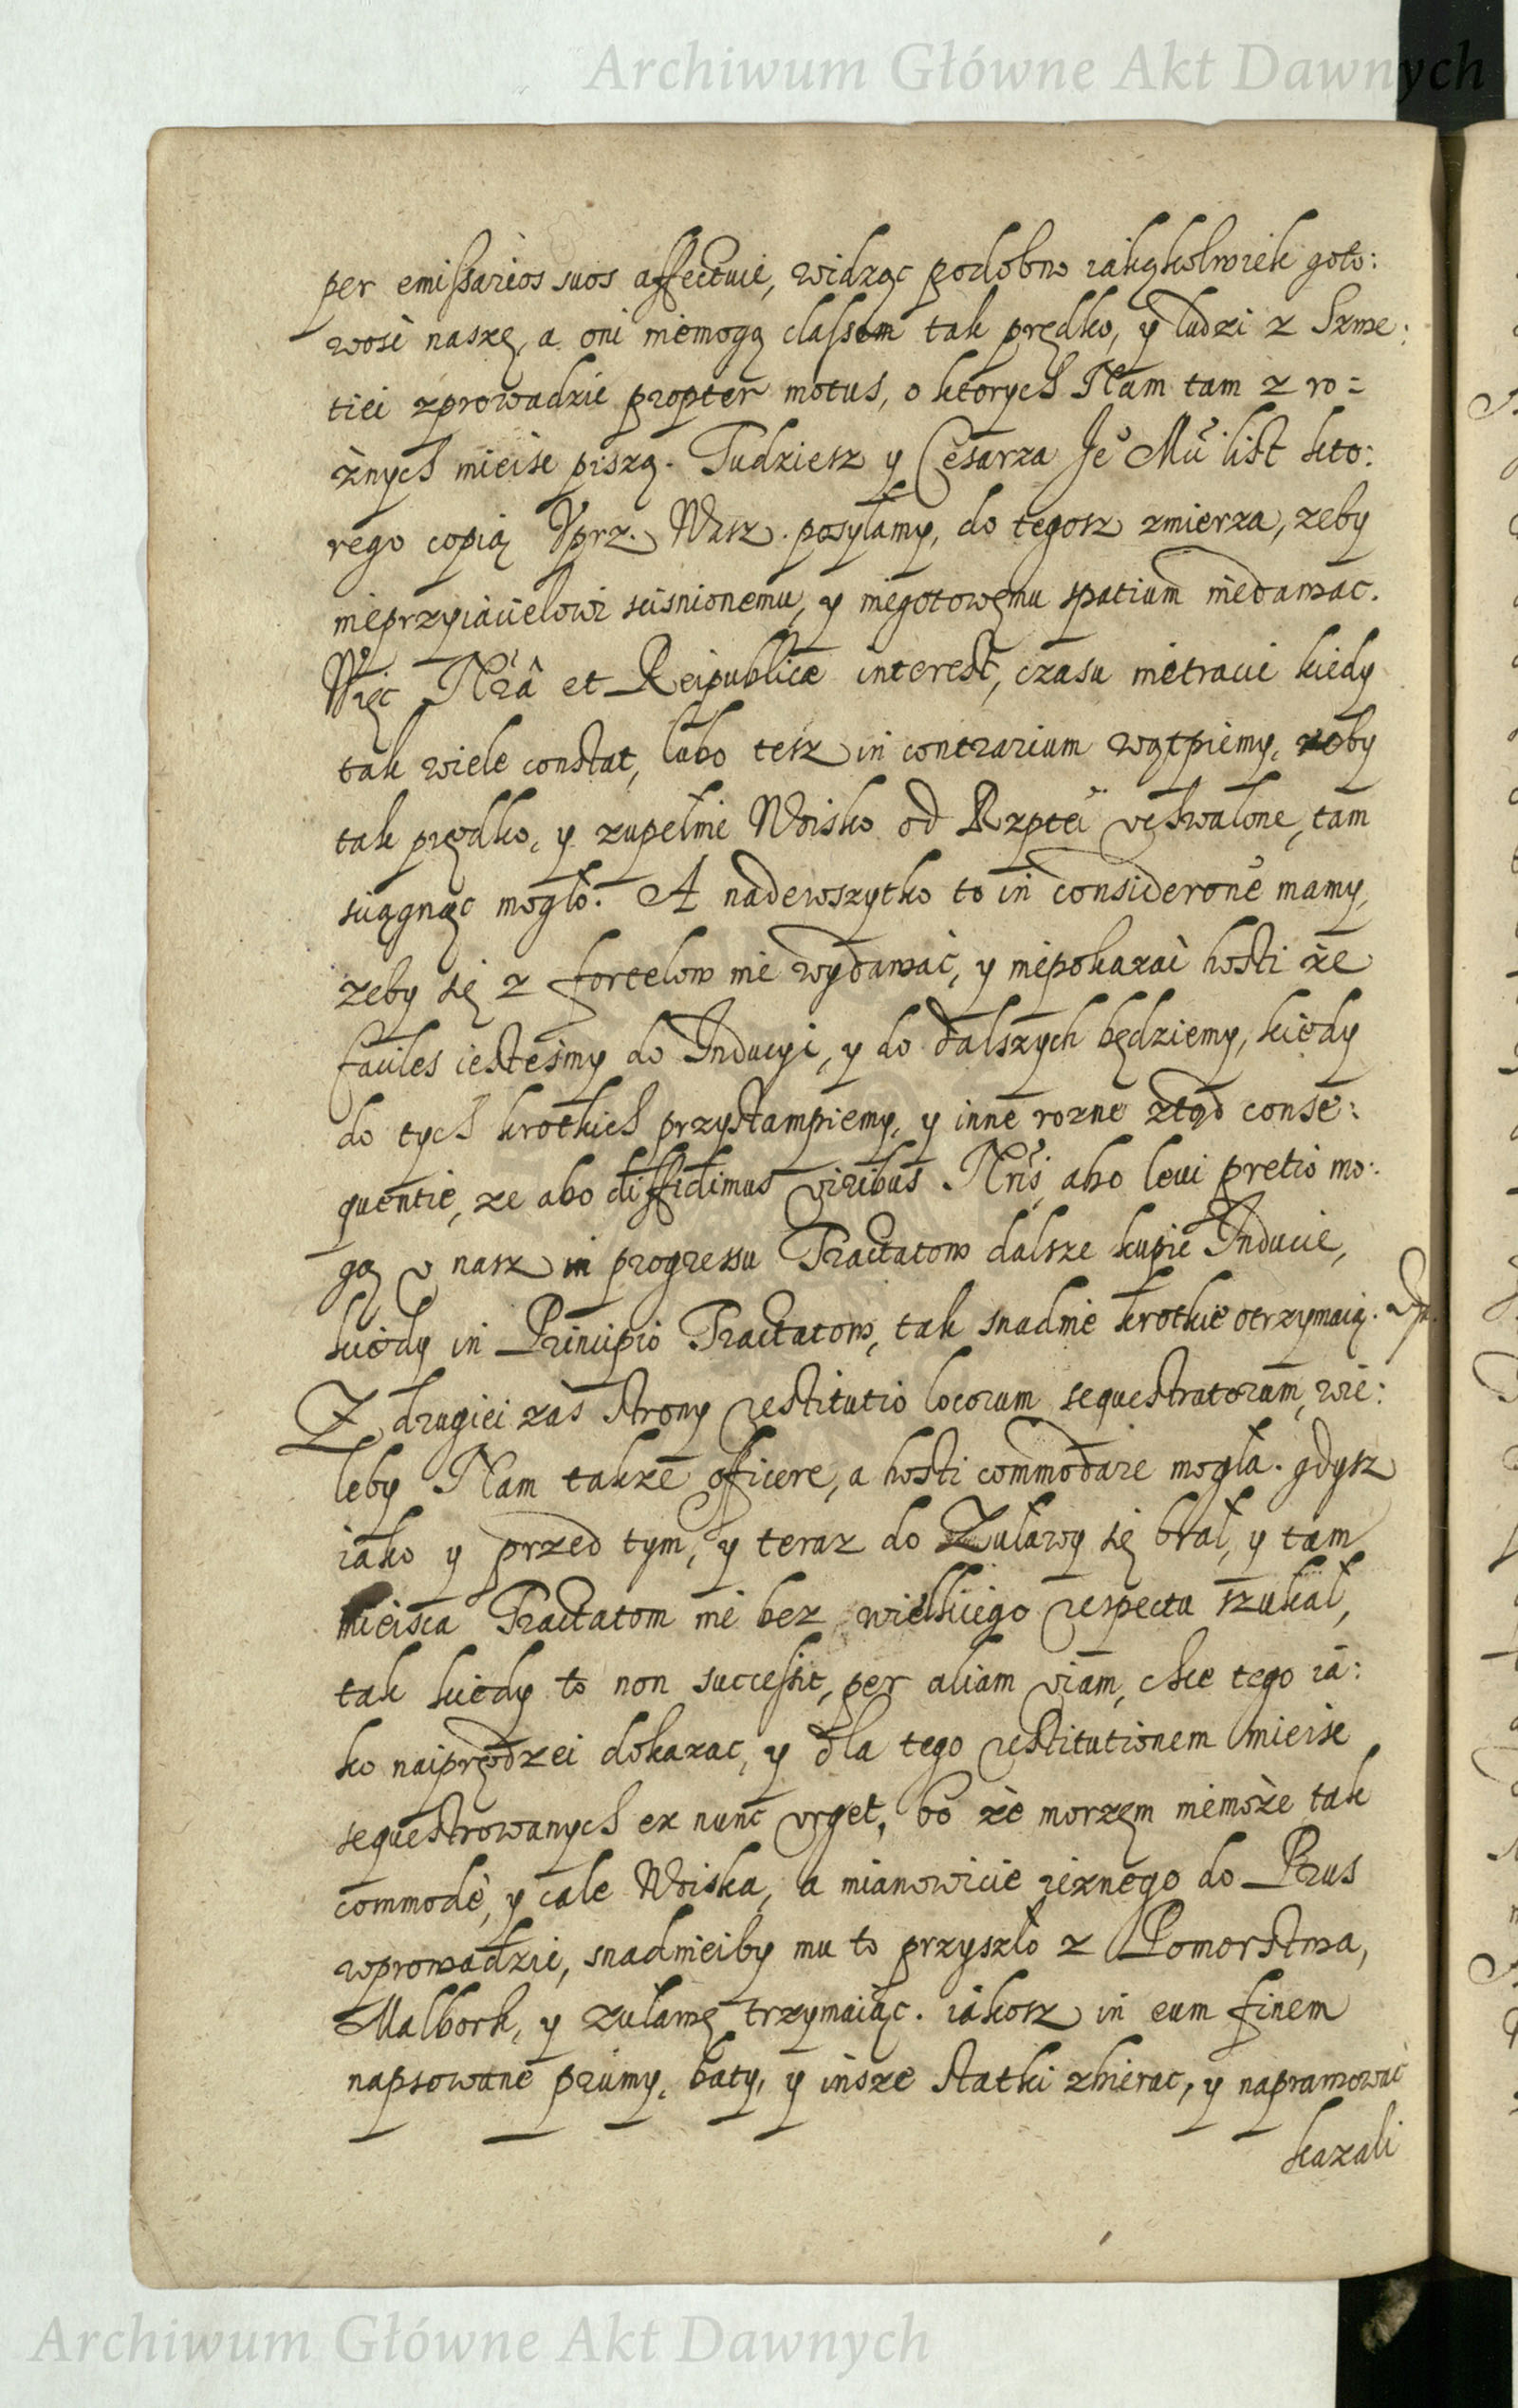 Archiwum Główne Akt Dawnych
per emissarios suos affectuie, widząc podobno iakążkolwiek goto:
wosć naszę, a oni niemogą classem tak prędko, y ludzi z Szwe:
tiei zprowadzic propter motus, o ktorych Nam tam z ro=
żnych mieisc piszą. Tudziesz y Cesarza Je° Mci list kto:
rego copią Vprz. Wasz. posyłamy, do tegosz zmierza, zeby
nieprzyiacielowi scisnionemu, y niegotowemu spatium niedawac.
Więc Nrâ et Reipublicæ interest, czasu nietracic kiedy
tak wiele constat, lubo tesz in contrarium wątpiemy, zeby
tak prędko, y zupełnie Woisko od Rzptéi vchwalone, tam
sciągnąc mogło. A nadewszytko to in considerone mamy,
zeby się z fortelow nie wydawać, y niepokazać hosti że
faciles iestesmy do Inducyi, y do dalszych będziemy, kiedy
do tych krotkich przystampiemy, y inne rozne ztąd conse:
quentie, ze abo diffidimus viribus Nris, abo leui pretio mo:
gą v nasz in progressu Tractatow dalsze kupic Inducie,
kiedy in Principio Tractatow, tak snadnie krotkie otrzymaią.
Z drugiei zás strony restitutio locorum sequestratorum, wie:
leby Nam także officere, a hosti commodare mogła. gdysz
iako y przed tym, y teraz do Zuławy się brał, y tam
mieisca Tractatom nie bez wielkiego respectu szukał,
tak kiedy to non successit, per aliam viam, chce tego ia:
ko naiprędzei dokazac, y dla tego restitutionem mieisc
sequestrowanych ex nunc vrget, bo że morzem niemoże tak
commodè, y całe Woiska, a mianowicie ieznego do Prus
wprowadzic, snadnieiby mu to przyszło z Pomorstwa,
Malbork, y zuławę trzymaiąc. iakosz in eum finem
napsowane prumy, baty, y insze statki zbierac, y naprawować
kazali
Archiwum Główne Akt Dawnych